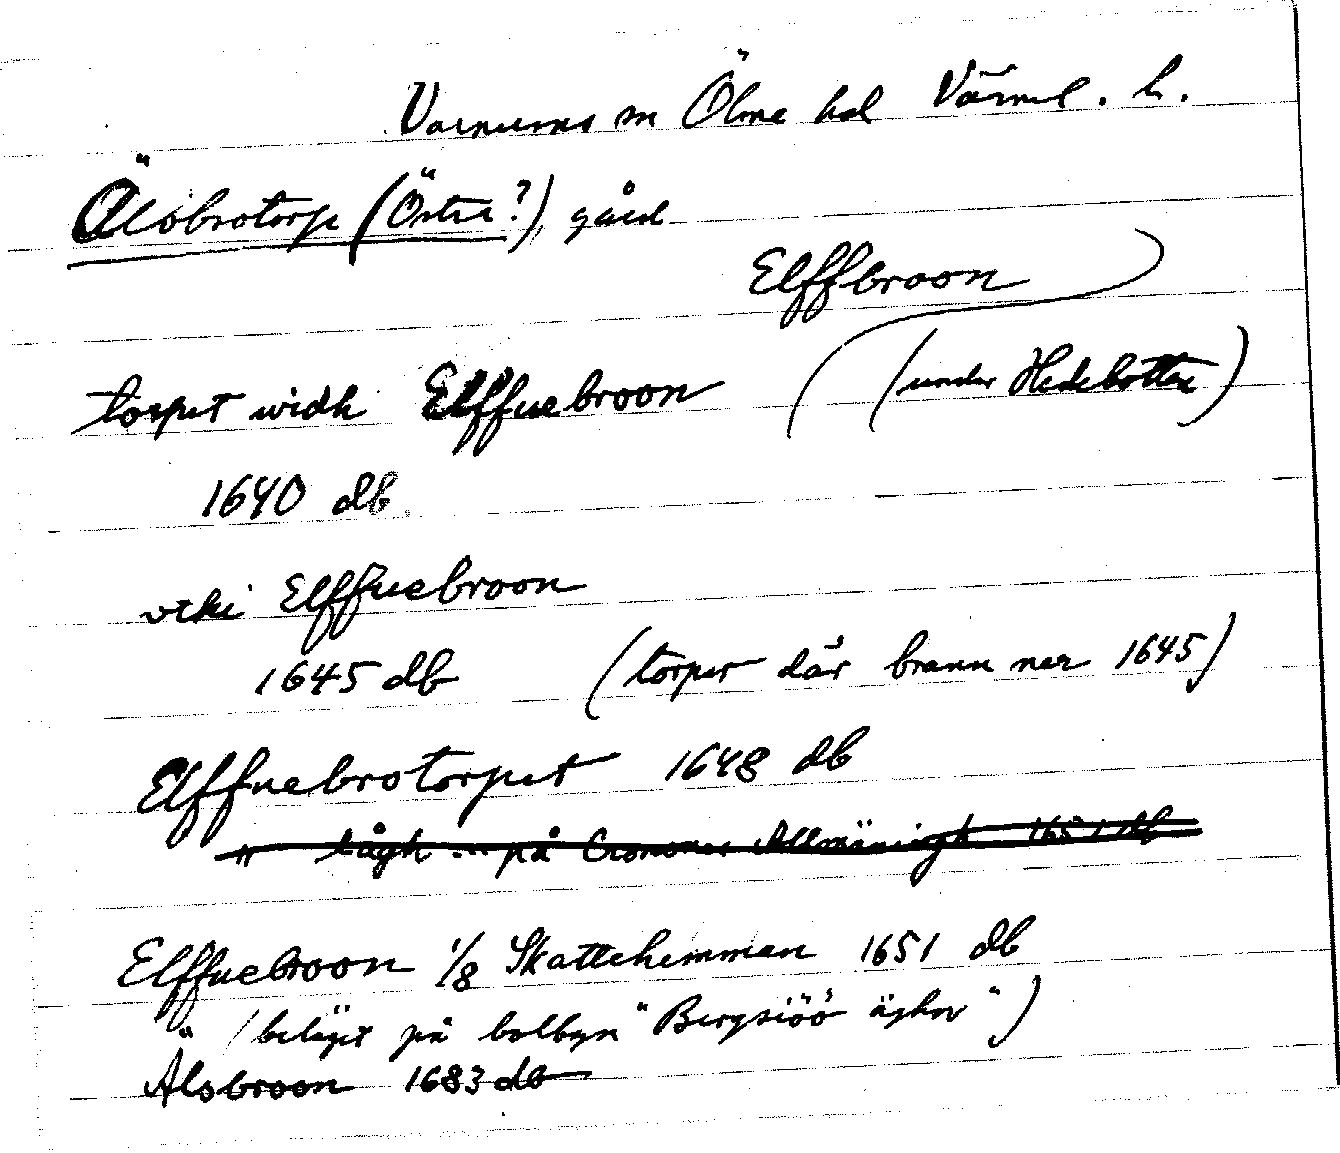 Varnums sn Ölme hd Värml. l.
Älvbrotorp (Östra?), gård
Elffbroon
torpet widh Elffuebroon (under Hedebotten)
1640 db
widh Elffuebroon
1645 db (torpet där brann ner 1645)
Elffuebrotorpet 1648 db
" lågh ... på Cronones Allmäningh 1651 db
Elffuebroon 1/8 Skattehemman 1651 db
" (beläget på bolbyn "Bergsiöö äghor")
Älvbroon 1683 db